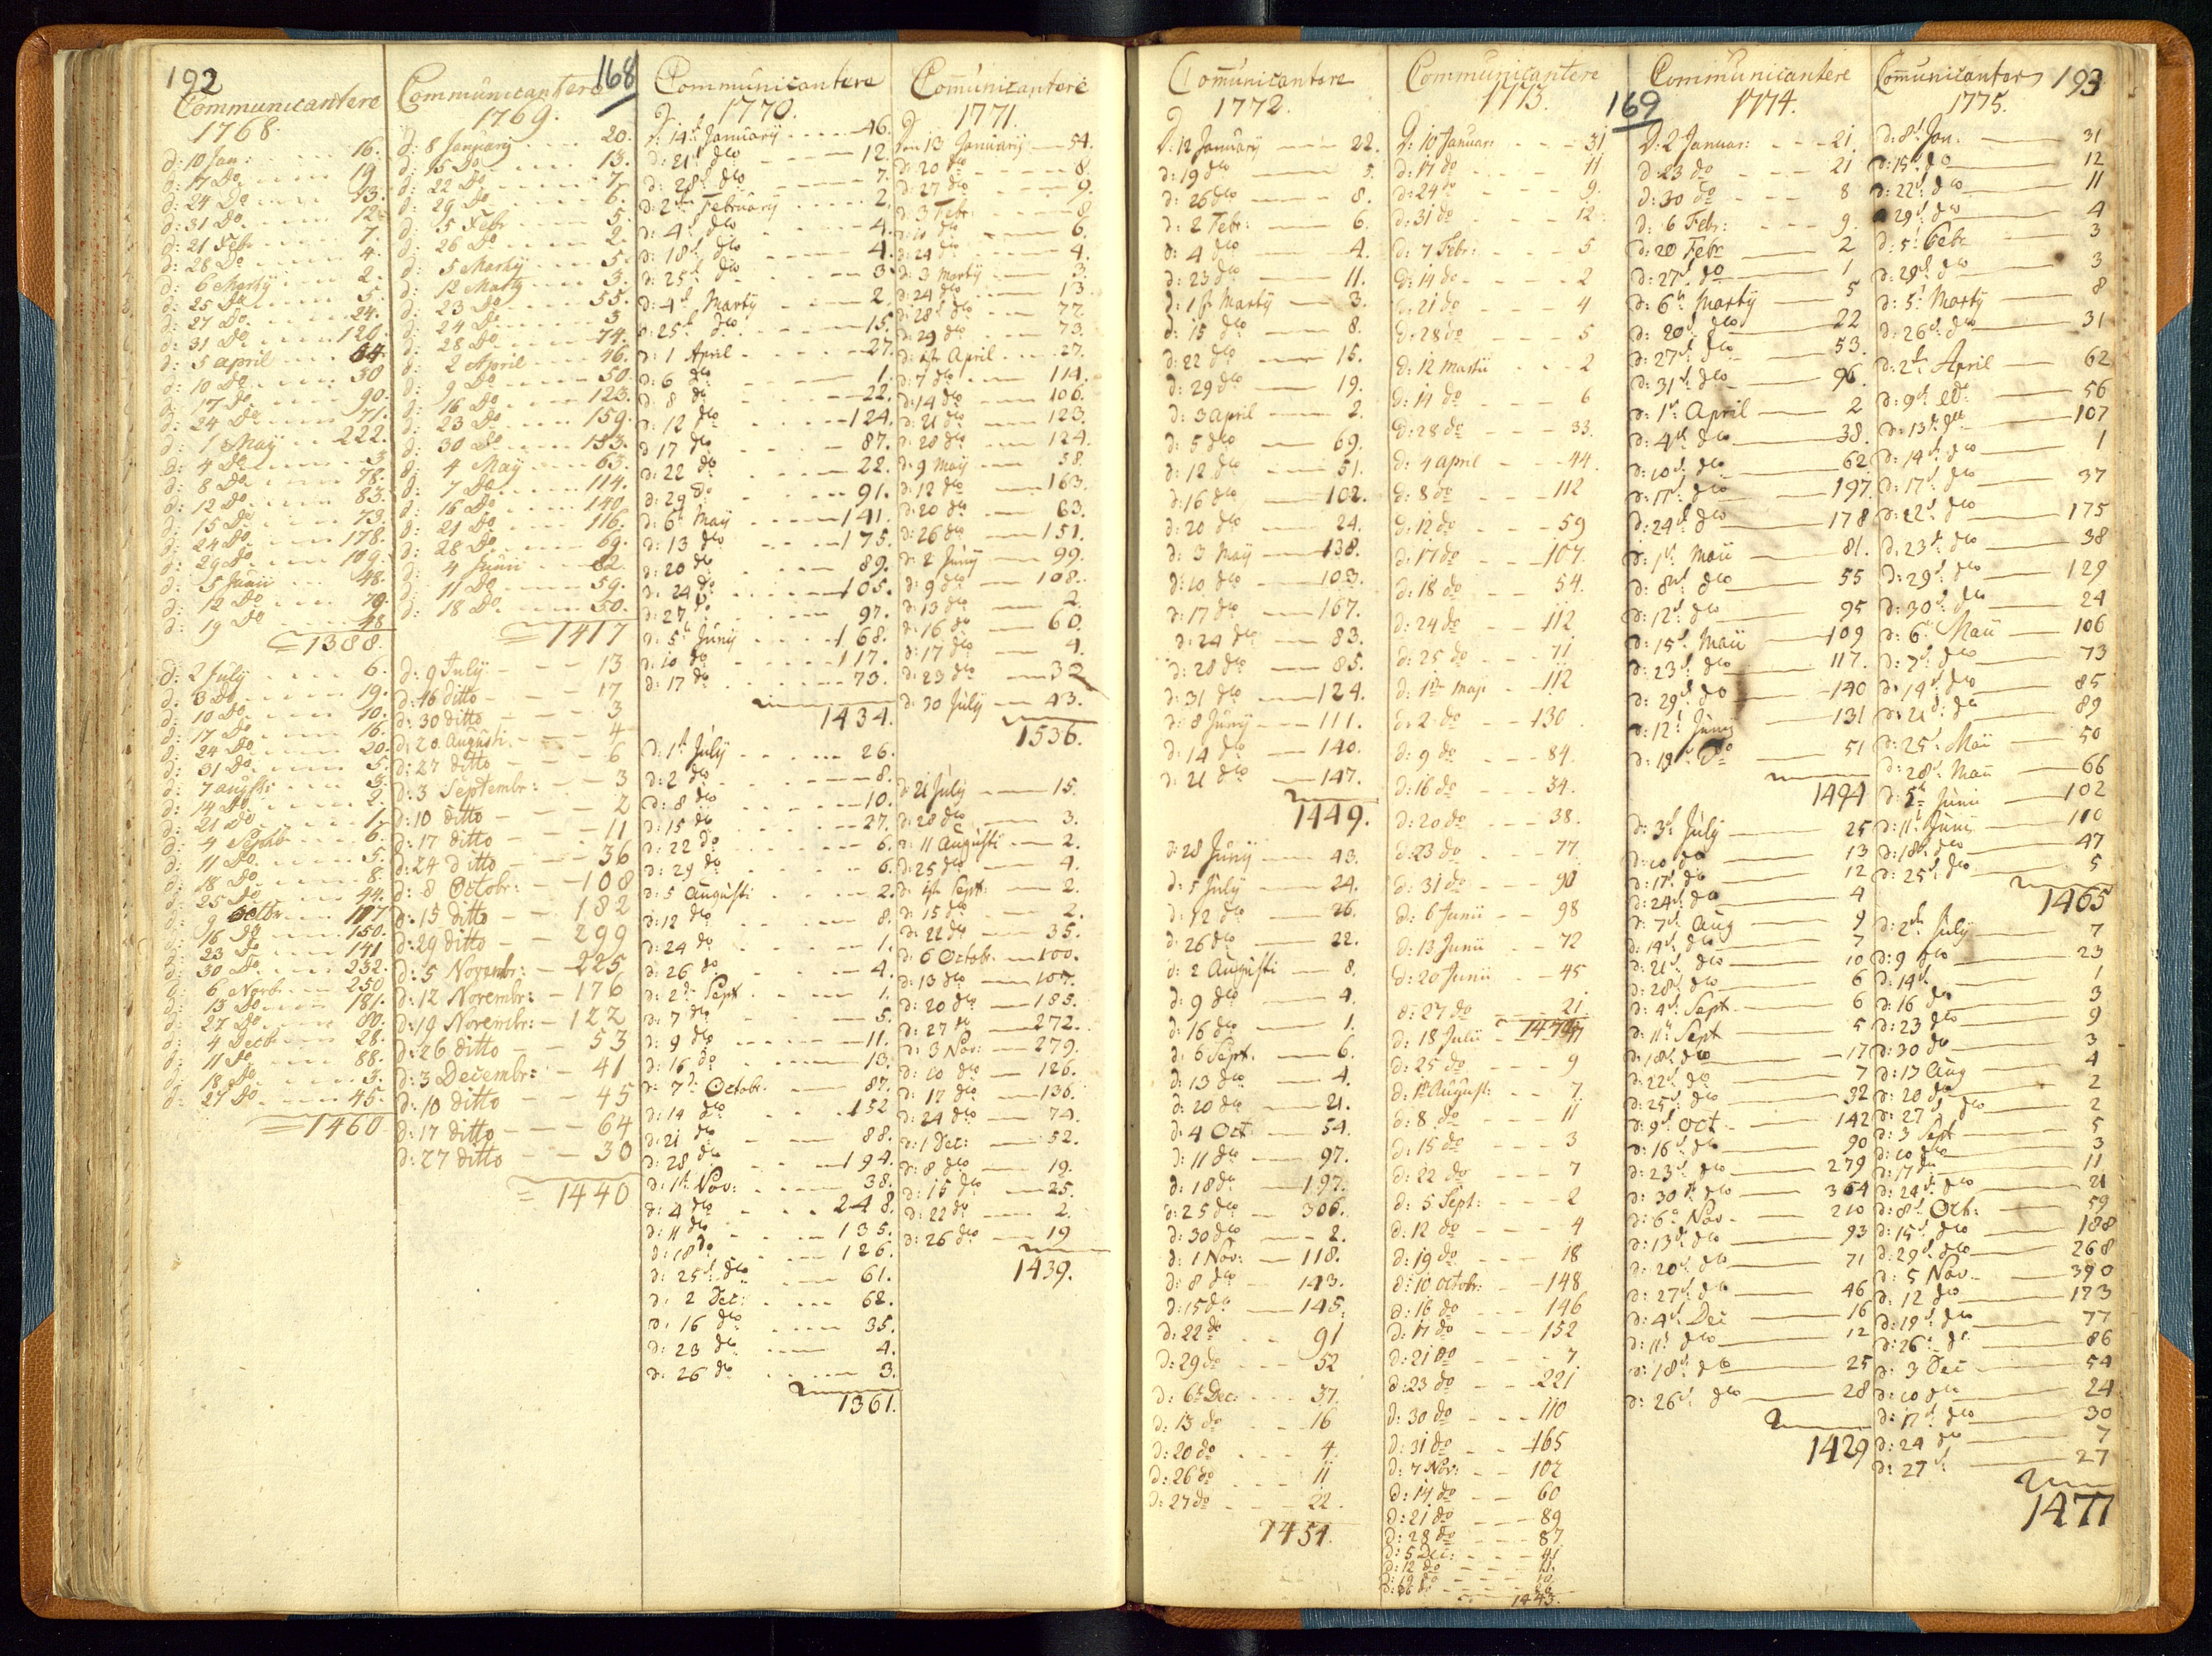 192
Communicantere
1768.
d: 10 Jan: 16.
d: 17 Do 19
d: 24 Do 13.
d: 31 Do 12.
d: 21 Febr 7.
d: 28 Do 4.
d: 6 Martij 2.
d: 25 Do 5.
d: 27 Do 24.
d: 31 Do 120.
d: 5 april 64.
d: 10 Do 50
d: 17 Do 90.
d: 24 Do 71.
d: 1 Maij 222.
d: 4 Do 3
d: 8 Do 78.
d: 12 Do 83.
d: 15 Do 73.
d: 24 Do 178.
d: 29 Do 109.
d: 5 Junii 48.
d: 12 Do 79.
d: 19 Do 48
=1388.
d: 2 July 6.
d: 3 Do 19.
d: 10 Do 10.
d: 17 Do 16.
d: 24 Do 20.
d: 31 Do 5.
d: 7 augusti 3.
d: 14 Do 2.
d: 21 Do 1.
d: 4 Septb 6.
d: 11 Do 5.
d: 18 Do 8.
d: 25 Do 44.
d: 9 octbr 117
d: 16 Do 150.
d: 23 Do 141
d: 30 Do 232.
d: 6 Novb 250
d: 13 Do 181.
d: 27 Do 80.
d: 4 Decb 28.
d: 11 Do 88.
d: 18 Do 3.
d: 27 Do 45.
=1460
168
Communicantere
1769.
d: 8 Januarij 20.
d: 15 Do 13.
d: 22 Do 7.
d: 29 Do 6.
d: 5 Febr 5.
d: 26 Do 2.
d: 5 Martij 5.
d: 12 Martij 3.
d: 23 Do 55.
d: 24 Do 3
d: 28 Do 74.
d: 2 April 46.
d: 9 Do 50.
d: 16 Do 123.
d: 23 Do 159.
d: 30 Do 153.
d: 4 Maij 63.
d: 7 Do 114.
d: 16 Do 140
d: 21 Do 116.
d: 28 Do 69.
d: 4 Junii 82.
d: 11 Do 59.
d: 18 Do 50.
=1417
d: 9 July 13
d: 16 ditto 17
d: 30 ditto 3
d: 20 Augusti 4
d: 27 ditto 6
d: 3 Septembr: 3
d: 10 ditto 2
d: 17 ditto 11
d: 24 ditto 36
d: 8 Octobr: 108
d: 15 ditto 182
d: 29 ditto 299
d: 5 Novembr: 225
d: 12 Novembr: 176
d: 19 Novembr: 122
d: 26 ditto 53
d: 3 Decembr: 41
d: 10 ditto 45
d: 17 ditto 64
d: 27 ditto 30
= 1440
Communicantere
1770.
d: 14d Januarij 46.
d: 21d dto 12.
d: 28d dto 7.
d: 2den February 2.
d: 4d dto 4.
d: 18d dto 4.
d: 25d dto 3
d: 4d Martij 2.
d: 25d dto 15.
d: 1 April 27.
d: 6 do 1.
d: 8 do 22.
d: 12 dto 124.
d 17 do 87.
d: 22 do 22.
d: 29 do 91.
d: 6d Maij 141.
d: 13 dto 175.
d: 20 do 89.
d: 24 do 105.
d: 27 do 97.
d: 5d Junij 168.
d: 10 do 117.
d: 17 do 73.
1434.
d: 1st July 26.
d: 2 do 8.
d: 8 dto 10.
d: 15 do 27.
d: 22 do 6.
d: 29 do 6.
d: 5 augusti 2.
d: 12 dto 8.
d: 24 do 1.
d: 26 do 4.
d: 2d Sept 1.
d: 7 do 5.
d: 9 do 11.
d: 16 do 13.
d: 7d Octobr. 87.
d: 14 do 152
d: 21 do 88.
d: 28 dto 194.
d: 1st Nov: 38.
d: 4 dto 248.
d: 11 dto 135.
d: 18 do 126.
d: 25d dto 61.
d: 2 Dec: 62.
d: 16 dto 35.
d: 23 dto 4.
d: 26 do 3.
1361.
Comunicantere
1771.
den 13 Januarij 54.
d: 20 do 8.
d: 27 dto 9.
d: 3 Febr: 8
d: 11 do 6.
d: 24 do 4.
d: 3 Martij 3.
d: 24 dto 13.
d: 28d dto 77
d: 29 dto 73.
d: 1st April 27.
d: 7 dto 114.
d: 14 dto 106.
d: 21 dto 123.
d: 28 dto 124.
d: 9 Maij 58.
d: 12 dto 163.
d: 20 dto 63.
d: 26 dto 151.
d: 2 Junij 99.
d: 9 dto 108.
d: 13 dto 2.
d: 16 do 60.
d: 17 dto 4.
d: 23 dto 32
d: 30 July 43.
1536.
d: 21 July 15.
d: 28 dto 3.
d: 11 Augusti 2.
d: 25 dto 4.
d: 1st Sept: 2.
d: 15 do 2.
d: 22 dto 35.
d: 6 Octobr. 100.
d: 13 dto 107.
d: 20 dto 185.
d: 27 do 272.
d: 3 Nov: 279.
d: 10 dto 126.
d: 17 dto 136.
d: 24 dto 74.
d: 1 Dec: 52.
d: 8 dto 19.
d: 15 dto 25.
d: 22 do 2.
d: 26 dto 19
1439.
Comunicantere
1772.
D: 12 Januarij 22.
d: 19 dto 5.
d: 26 dto 8.
d: 2 Febr: 6.
d: 4 dto 4.
d: 23 dto 11.
d: 1st Martij 3.
d: 15 dto 8.
d: 22 dto 15.
d: 29 dto 19.
d: 3 april 2.
d: 5 dto 69.
d: 12 dto 51.
d: 16 dto 102.
d: 20 dto 24.
d: 3 Maij 138.
d: 10 dto 103.
d: 17 dto 167.
d: 24 dto 83.
d: 28 dto 85.
d: 31 dto 124.
d: 8 Junij 111.
d: 14 dto 140.
d: 21 dto 147.
1449.
d: 28 Junij 43.
d: 5 July 24.
d: 12 dto 26.
d: 26 dto 22.
d: 2 Augusti 8.
d: 9 dto 4.
d: 16 dto 1.
d: 6 Sept. 6.
d: 13 dto 4.
d: 20 dto 21.
d: 4 Oct 54.
d: 11 dto 97.
d: 18 dto 197.
d: 25 dto 306.
d: 30 dto 2.
d: 1 Nov: 118.
d: 8 dto 143.
d: 15 dto 145.
d: 22 do 91
d: 29 do 52
d: 6t Dec: 37.
d: 13 do 16
d: 20 do 4.
d: 26 do 11
d: 27 do 22.
1454.
Communicantere
1773.
D: 10 Januar: 31
d: 17 do 11
d: 24 do 9.
d: 31 do 12
d: 7 Febr: 5
d: 14 do 2
d: 21 do 4
d: 28 do 5
d: 12 Martii 2
d: 14 do 6
d: 28 do 33.
d: 4 april 44.
d: 8 do 112
d: 12 do 59
d: 17 do 107.
d: 18 do 54.
d: 24 do 112
d: 25 do 71
d: 1ste Maji 112
d: 2 do 130
d: 9 do 84.
d: 16 do 34.
d: 20 do 38.
d: 23 do 77
d: 31 do 90
d: 6 Junii 98
d: 13 Junii 72
d: 20 Junii 45
d: 27 do 21
d: 18 Julii
d: 25 do 9
d: 1st August: 7.
d: 8 do 11
d: 15 do 3
d: 22 do 7
d: 5 Sept: 2
d: 12 do 4
d: 19 do 18
d: 10 octobr: 148
d: 16 do 146
d: 17 do 152
d: 21 do 7.
d: 23 do 221
d: 30 do 110
d: 31 do 165
d: 7 Nov: 102
d: 14 do 60
d: 21 do 89
d: 28 do 87
d: 5 Dec: 41
d: 12 do
1443.
169
Communicantere
1774.
D: 2 Januar: 21.
d: 23 do 21
d: 30 do 8
d: 6 Febr: 9.
d: 20 Febr 2
d: 27d do 1
d: 6d Martij 5
d: 20d dto 22
d: 27d do 53.
d: 31d dto 96.
d: 1st April 2
d: 4d dto 38.
d: 10d dto 62
d: 17d dto 197.
d: 24d dto 178
d: 1st Maii 81.
d: 8d dto 55
d: 12d do 95
d: 15d Maii 109
d: 23d dto 117.
d: 29d do 140
d: 12d Junij 131
d: 19d do 51
1494
d: 3d July 25
d: 10 do 13
d: 17d do 12
d: 24d do 4
d: 7d Aug 9
d: 14d dto 7
d: 21d dto 10
d: 28d dto 6
d: 4d Sept 6
d: 11d Sept 5
d: 18d dto 17
d: 22d do 7
d: 25d dto 32
d: 9d Oct 142
d: 16d do 90
d: 23d dto 279
d: 30d dto 364
d: 6d Nov 210
d: 13d dto 93
d: 20d do 71
d: 27d do 46
d: 4d Dec 16
d: 11d dto 12
d: 18d do 25
d: 26d dto 28
1429
Comunicanter 193
1775.
d: 8d Jan. 31
d: 15d do 12
d: 22d dto 11
29d do 4
d: 5d Febr 3
d: 29d dto 3
d: 5d Martij 8
d: 26d dto 31
d: 2d April 62
d: 9d do 56
d: 13d dto 107
d: 14d do 1
d: 17d do 37
d: 22d dto 175
d: 23d dto 38
d: 29d dto 129
d: 30d do 24
d: 6d Maii 106
d: 7d do 73
d: 14d do 85
d: 21d do 89
d: 25d Maii 50
d: 28d Maii 66
d: 5d Junii 102
d: 11d Junii 110
d: 18d dto 47
d: 25d do 5
1465
d: 2d July 7
d: 9 dto 23
d: 14d 1
d: 16 do 3
d: 23 dto 9
d: 30 do 3
d: 13 Aug 4
d: 20 do 2
d: 27d dto 2
d: 3 Sept 5
d: 10 dto 3
d: 17 do 11
d: 24d dto 21
d: 8d Octb: 59
d: 15d dto 188
d: 29d dto 268
d: 5 Nov 390
d: 12 do 173
d: 19d dto 77
d: 26d do 86
d: 3 Dec 54
d: 10 do 24
d: 17d dto 30
d: 24 do 7
d: 27d 27
1477